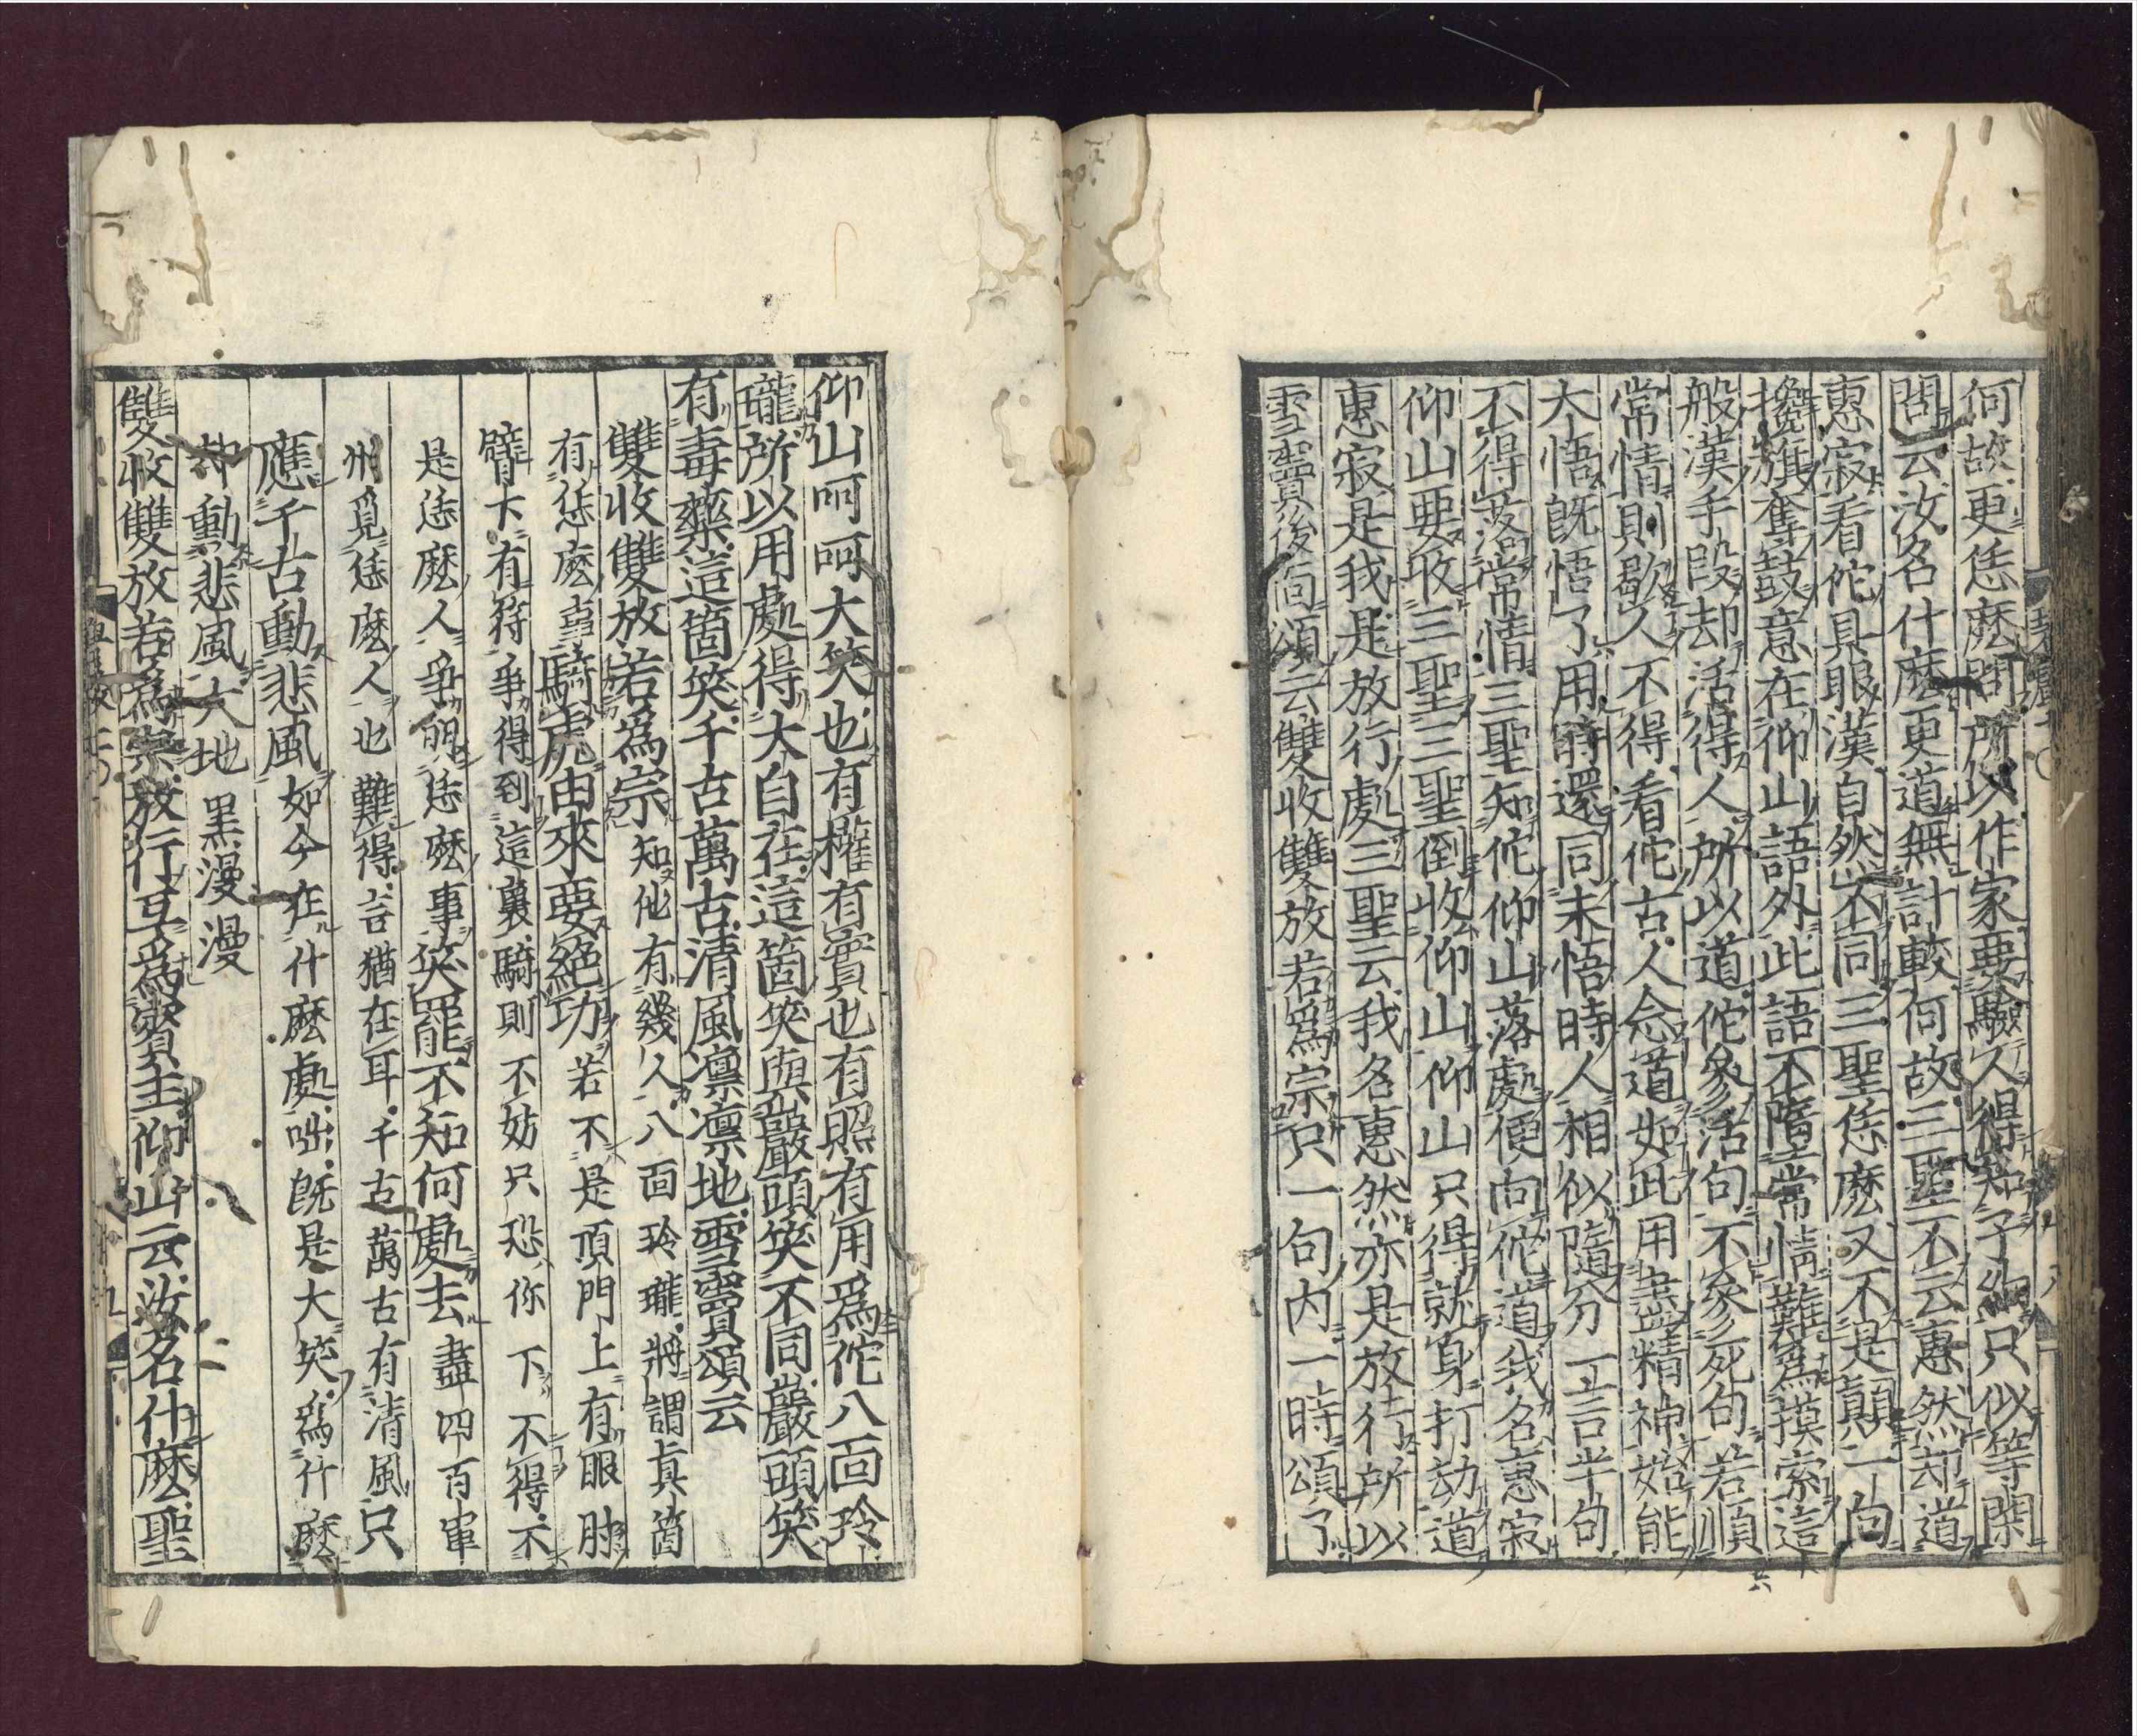 何故更恁麽問所以作家要驗人得知子細只似等閑
問云汝名什麽更道無計較何故三聖不云惠然却道
惠寂看佗具眼漢自然不同三聖恁麽又不是顛一向
攙旗奪鼓意在仰山語外此語不墮常情難爲摸索這
般漢手段却活得人所以道佗參活句不參死句若順
常情則歇人不得看佗古人念道如此用盡精神始能
大悟旣悟了用時還同未悟時人相似隨分一言半句
不得落常情三聖知佗仰山落處便向佗道我名惠寂
仰山要收三聖三聖倒收仰山仰山只得就身打劫道
惠寂是我是放行處三聖云我名惠然亦是放行所以
雪竇後面頌云雙收雙放若爲宗只一句內一時頌了
仰山呵呵大笑也有權有實也有照有用爲佗八面玲
瓏所以用處得大自在這箇笑與巖頭笑不同巖頭笑
有毒藥這箇笑千古萬古清風凛凛地雪竇頌云
雙收雙放若爲宗知他有幾人八面玲瓏將謂眞箇
有恁麽事騎虎由來要絕功若不是頂門上有眼肘
臂下有符爭得到這裏騎則不妨只恐你下不得不
是恁麽人爭明恁麽事笑罷不知何處去盡四百軍
州覓恁麽人也難得言猶在耳千古萬古有清風只
應千古動悲風如今在什麽處咄旣是大笑爲什麽
却動悲風大地黑漫漫
雙收雙放若爲宗放行互爲賓主仰山云汝名什麽聖